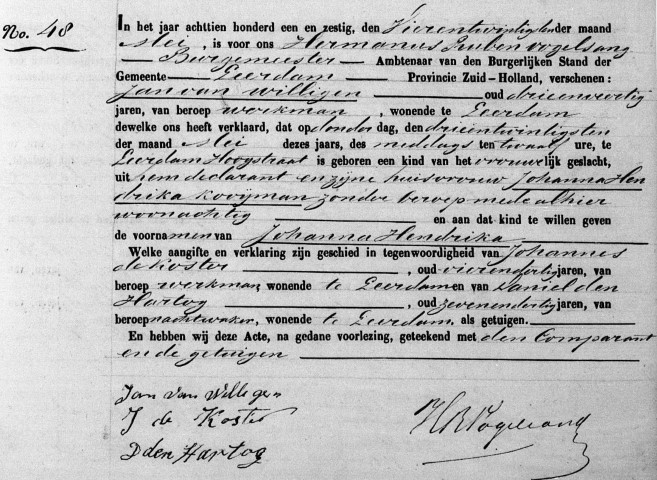 No. 48
In het jaar achttien honderd een en zestig, den Vierentwintigsten der maand
Mei, is voor ons Hermanus Ruben Vogelsang
Burgemeester Ambtenaar van den Burgerlijken Stand der
Gemeente Leerdam Provincie Zuid-Holland, verschenen:
Jan van Willigen oud drieenveertig
jaren, van beroep werkman, wonende te Leerdam
dewelke ons heeft verklaard, dat op donderdag, den drieentwintigsten
der maand Mei dezes jaars, des middags ten twaalf ure, te
Leerdam Hoogstraat is geboren een kind van het vrouwelijk geslacht,
uit hem declarant en zijne huisvrouw Johanna Hen
drika Kooijman zonder beroep mede alhier
woonachtig en aan dat kind te willen geven
de voornamen van Johanna Hendrika
Welke aangifte en verklaring zijn geschied in tegenwoordigheid van Johannes
de Koster, oud vierendertig jaren, van
beroep werkman, wonende te Leerdam en van Daniel den
Hartog, oud zevenendertig jaren, van
beroep nachtwaker, wonende te Leerdam, als getuigen.
En hebben wij deze Acte, na gedane voorlezing, geteekend met den Comparant
en de getuigen
Jan van Willegen
J de Koster
D den Hartog
HRVogelsang